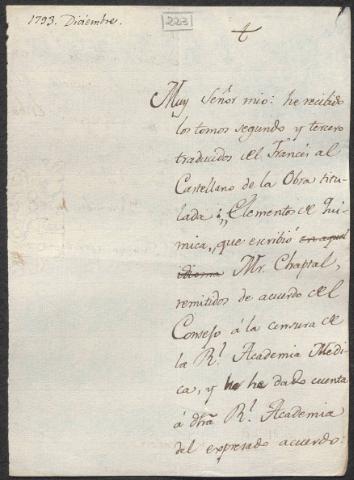 1793. Diciembre.
223
Muy Señor mio: he recibido
los tomos segundo y tercero
traducidos del Francés al
Castellano de la Obra titu-
lada: "Elementos de Qui-
mica," que escribió en aquel
idioma Mr. Chaptal,
remitidos de acuerdo del
Consejo á la censura de
la Rl. Academia Medi-
ca, y he dado cuenta
á dha Rl. Academia
del expresado acuerdo: